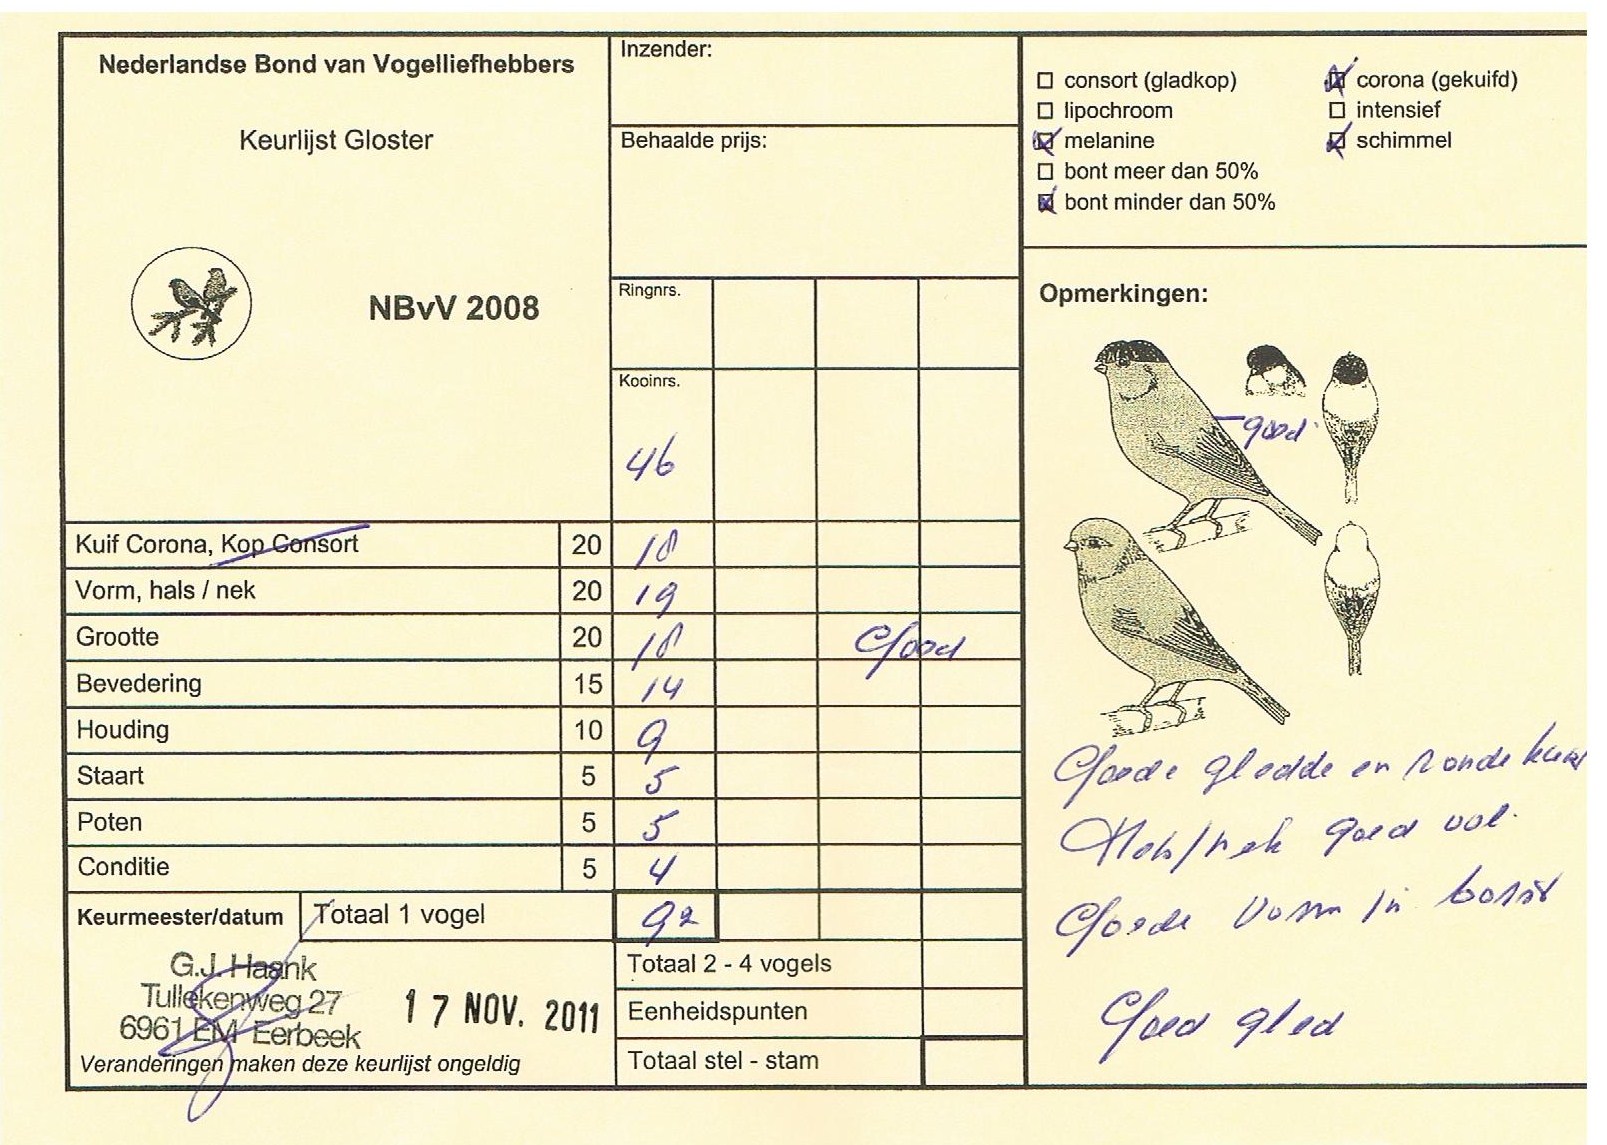 Nederlandse Bond van Vogelliefhebbers
Keurlijst Gloster
NBvV 2008
Inzender:
Behaalde prijs:
Ringnrs.
Kooinrs.
46
consort (gladkop)
corona (gekuifd)
lipochroom
intensief
melanine
schimmel
bont meer dan 50%
bont minder dan 50%
Opmerkingen:
goed
Kuif Corona, Kop Consort 20 18
Vorm, hals / nek 20 19
Grootte 20 18 Goed
Bevedering 15 14
Houding 10 9
Staart 5 5
Poten 5 5
Conditie 5 4
Keurmeester/datum Totaal 1 vogel 92
Totaal 2 - 4 vogels
Eenheidspunten
Totaal stel - stam
G.J. Haank
Tullekenweg 27
6961 EM Eerbeek
17 NOV. 2011
Veranderingen maken deze keurlijst ongeldig
Goede gladde en ronde
Hals/nek goed vol.
Goede vorm in borst
Goed glad